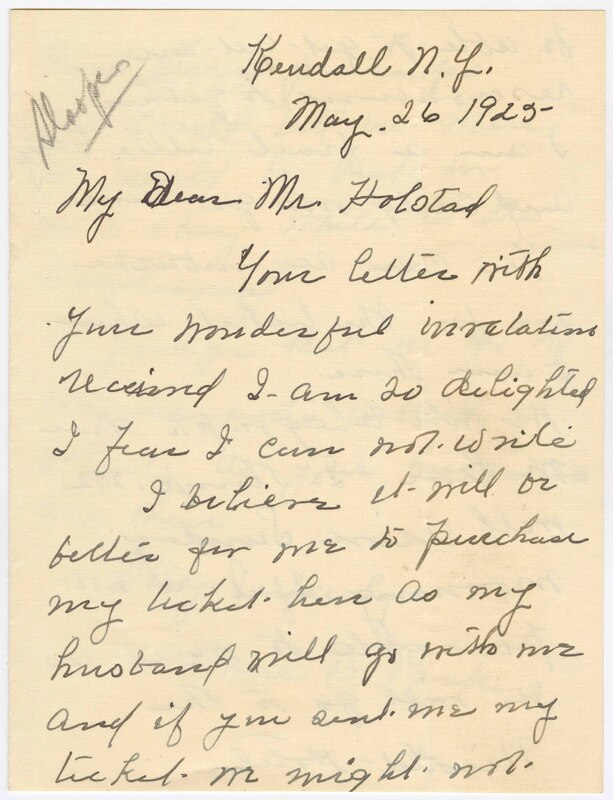 Sloopes
Kendall N.Y.
May. 26 1925-
My Dear Mr. Holstad
Your letter with
your wonderful invatation
received I am so delighted
I fear I can not write
I believe it will be
better for me to purchase
my ticket here as my
husband will go with me
and if you sent me my
ticket we might not